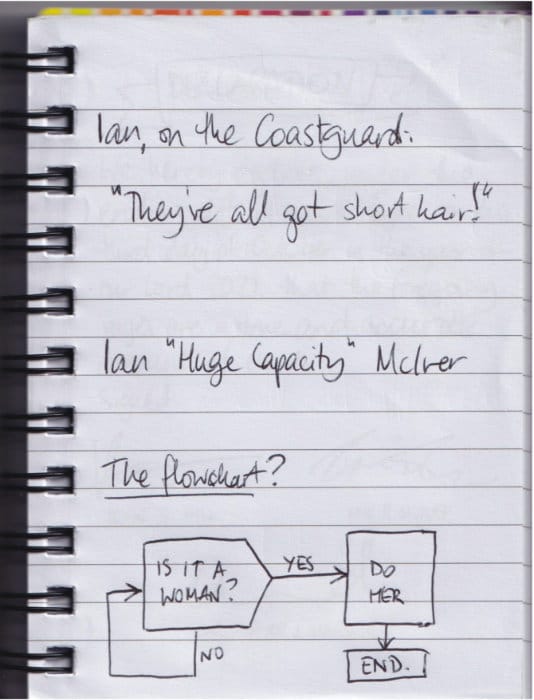 Ian, on the Coastguard:
"They've all got short hair!"
Ian "Huge Capacity" McIver
The flowchart?
IS IT A
WOMAN?
YES
DO
HER
NO
END.